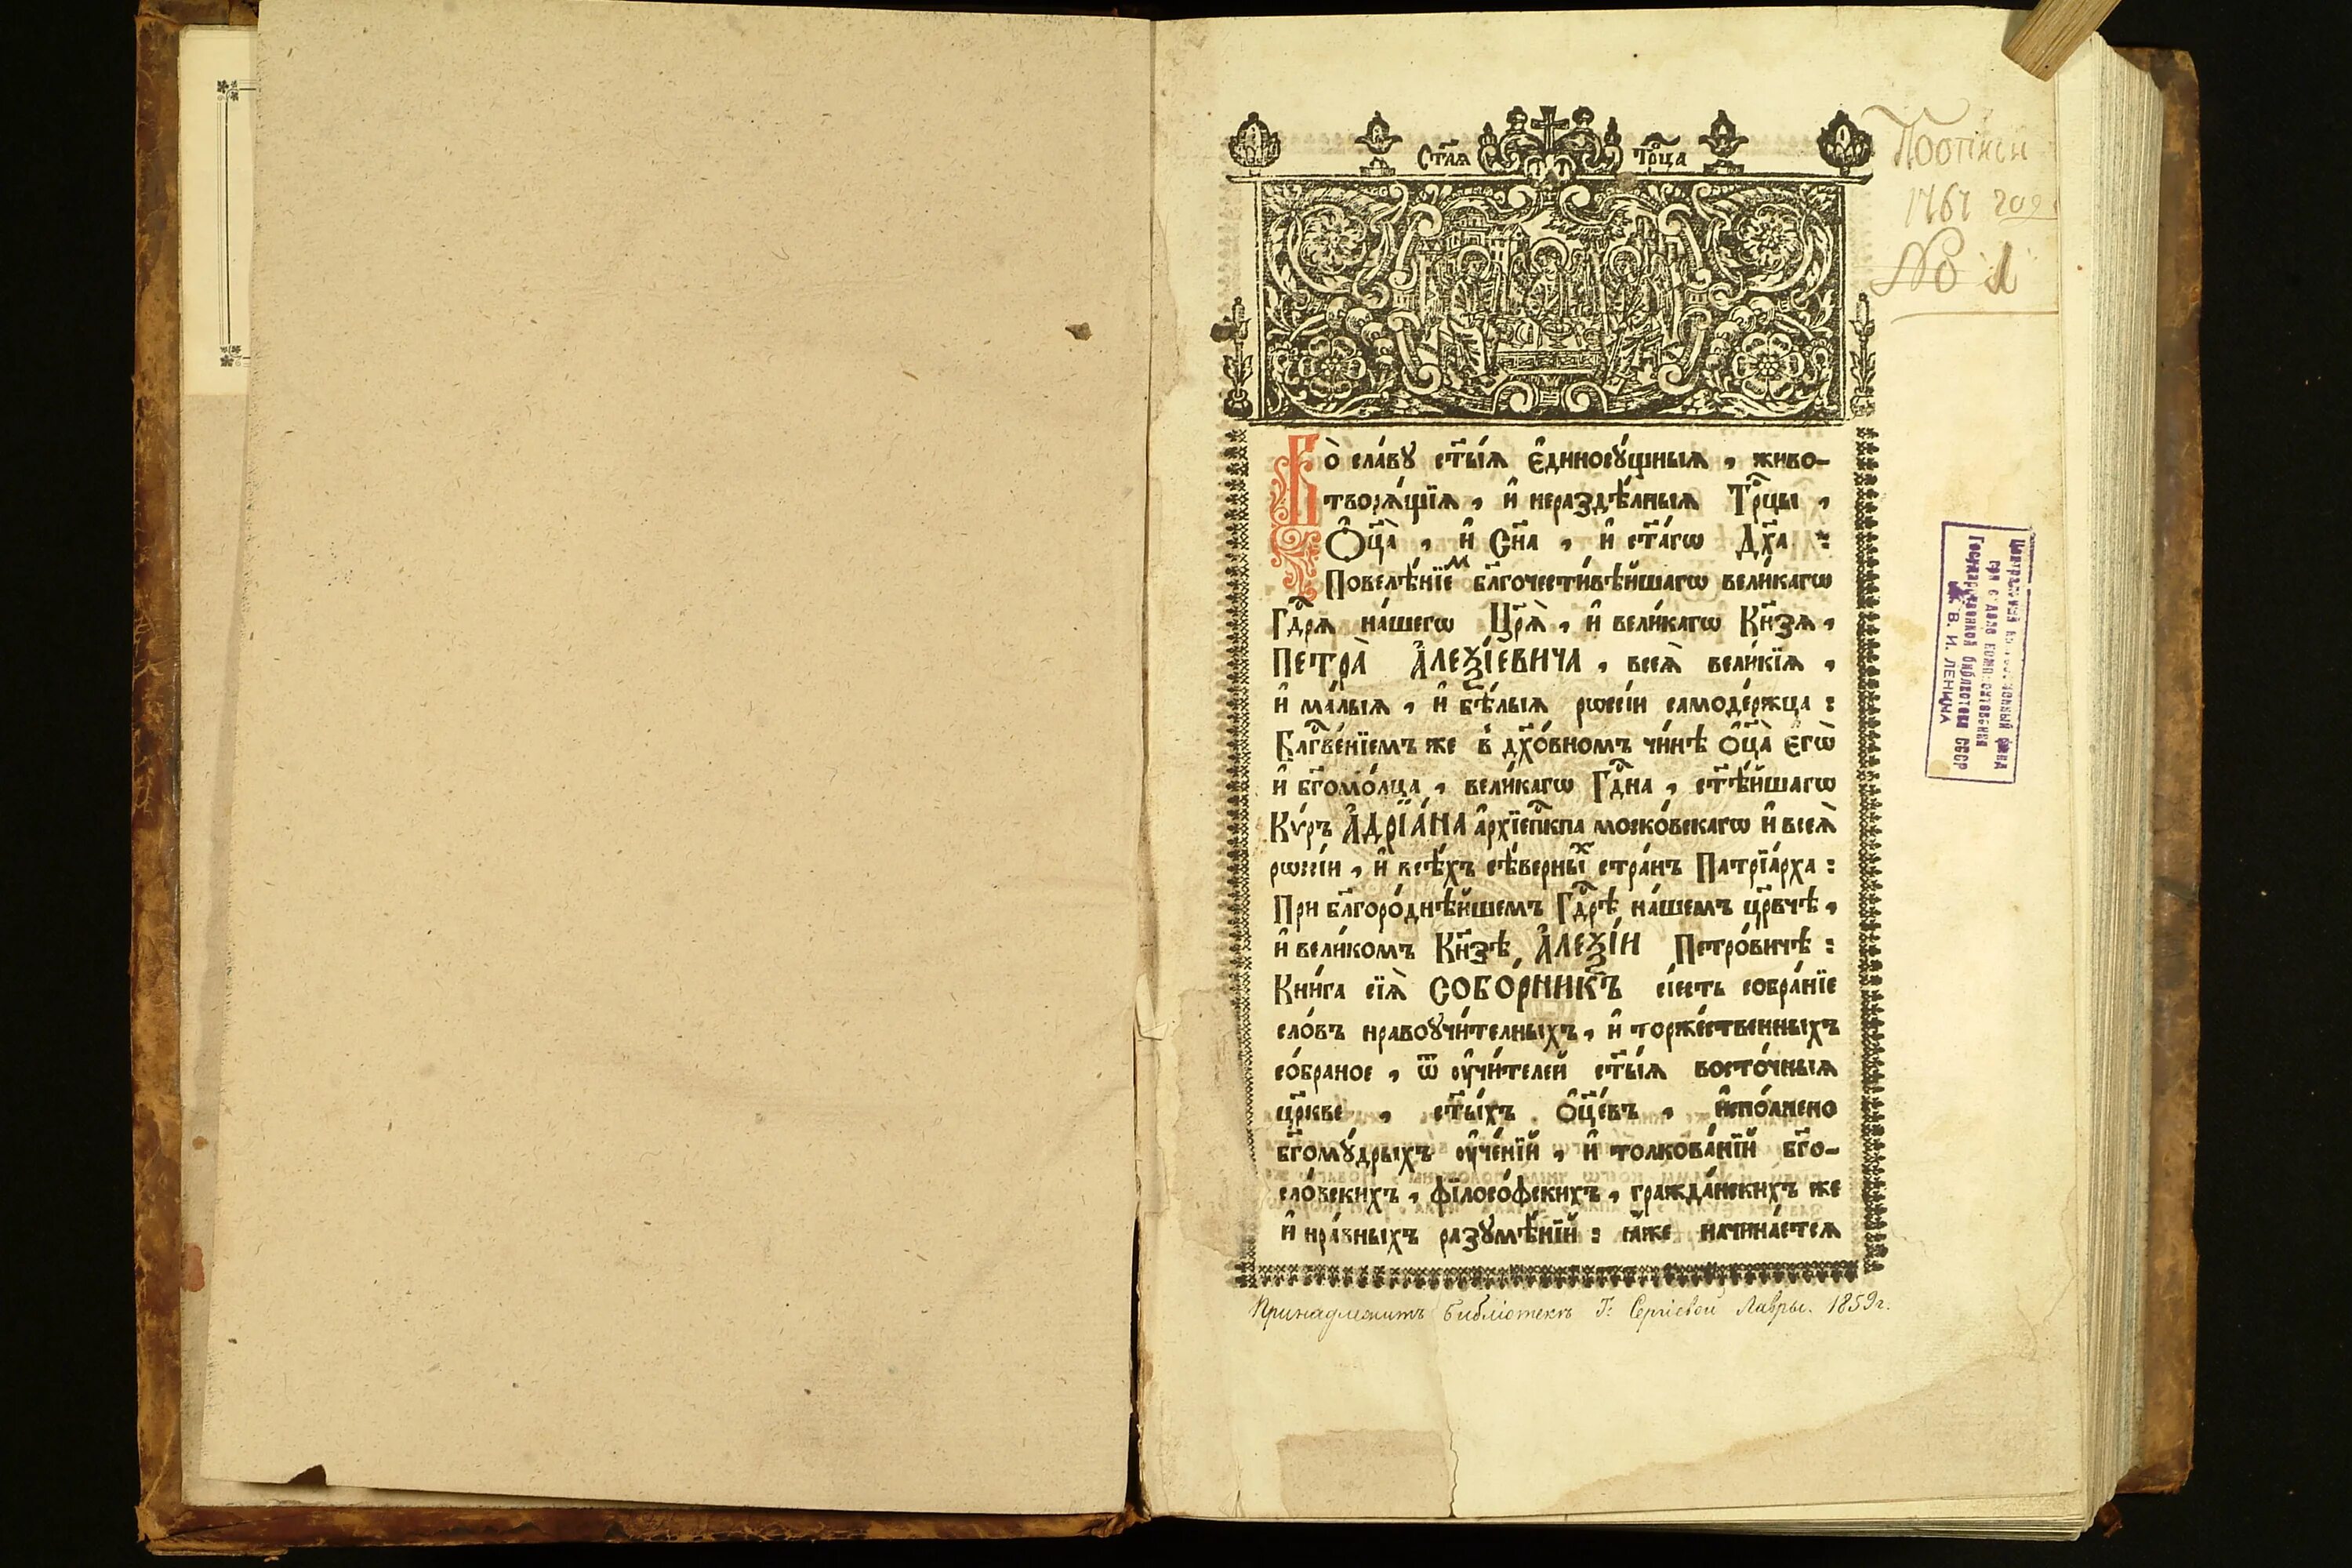 Ст҃аѧ Трⷪ҇ца
По описи
1767 года
№ 1
Во̀ сла́вꙋ ст҃ы́ѧ є҆диносꙋ́щныѧ, живо-
творѧ́щїѧ, и҆ нераздѣ́лныѧ Трⷪ҇цы,
Ѻ҆ц҃а̀, и҆ Сн҃а, и҆ ст҃а́гѡ Дх҃а :
Повелѣ́нїеⷨ бл҃гочести́вѣйшагѡ вели́кагѡ
Гдⷭ҇рѧ на́шегѡ Цр҃ѧ̀, и҆ вели́кагѡ Кн҃зѧ,
ПЕТРА̀ А҆ЛЕѮІ́ЕВИЧА, всеѧ̀ вели́кїѧ,
и҆ ма́лыѧ, и҆ бѣ́лыѧ рѡссі́и самоде́ржца :
Блгⷭ҇ве́нїемъ же в̾ дх҃о́вномъ чи́нѣ ѻ҆ц҃а̀ є҆гѡ̀
и҆ бг҃омо́лца, вели́кагѡ Гдⷭ҇на, ст҃ѣ́йшагѡ
Кѵ́ръ А҆ДРЇА́НА а҆рхїепⷭ҇кпа моско́вскагѡ и҆ всеѧ̀
рѡссі́и, и҆ всѣ́хъ сѣ́верныⷯ стра́нъ Патрїа́рха :
При бл҃горо́днѣйшемъ Гдⷭ҇рѣ̀ на́шемъ цр҃вчѣ,
и҆ вели́комъ Кн҃зѣ, А҆ЛЕѮІ́И Петро́вичѣ :
Кни́га сїѧ̀ СОБО́РНИКЪ сі́есть собра́нїе
сло́въ нравоꙋчи́телныхъ, и҆ торже́ственныхъ
со́браное, ѿ оу҆чи́телей ст҃ы́ѧ восто́чныѧ
цр҃кве, ст҃ы́хъ ѻ҆ц҃е́въ, и҆спо́лнено
бг҃омꙋ́дрыхъ оу҆че́нїй, и҆ толкова́нїй бг҃о-
сло́вскихъ, фїлосо́фскихъ, гражда́нскихъ же
и҆ нра́вныхъ разꙋмѣ́нїй : ꙗ҆́же начина́етсѧ
Принадлежитъ Библіотекѣ Т. Сергіевой Лавры. 1859 г.
Центральный фонд
при отделе комплектования
Государственной библиотеки СССР
им. В. И. ЛЕНИНА